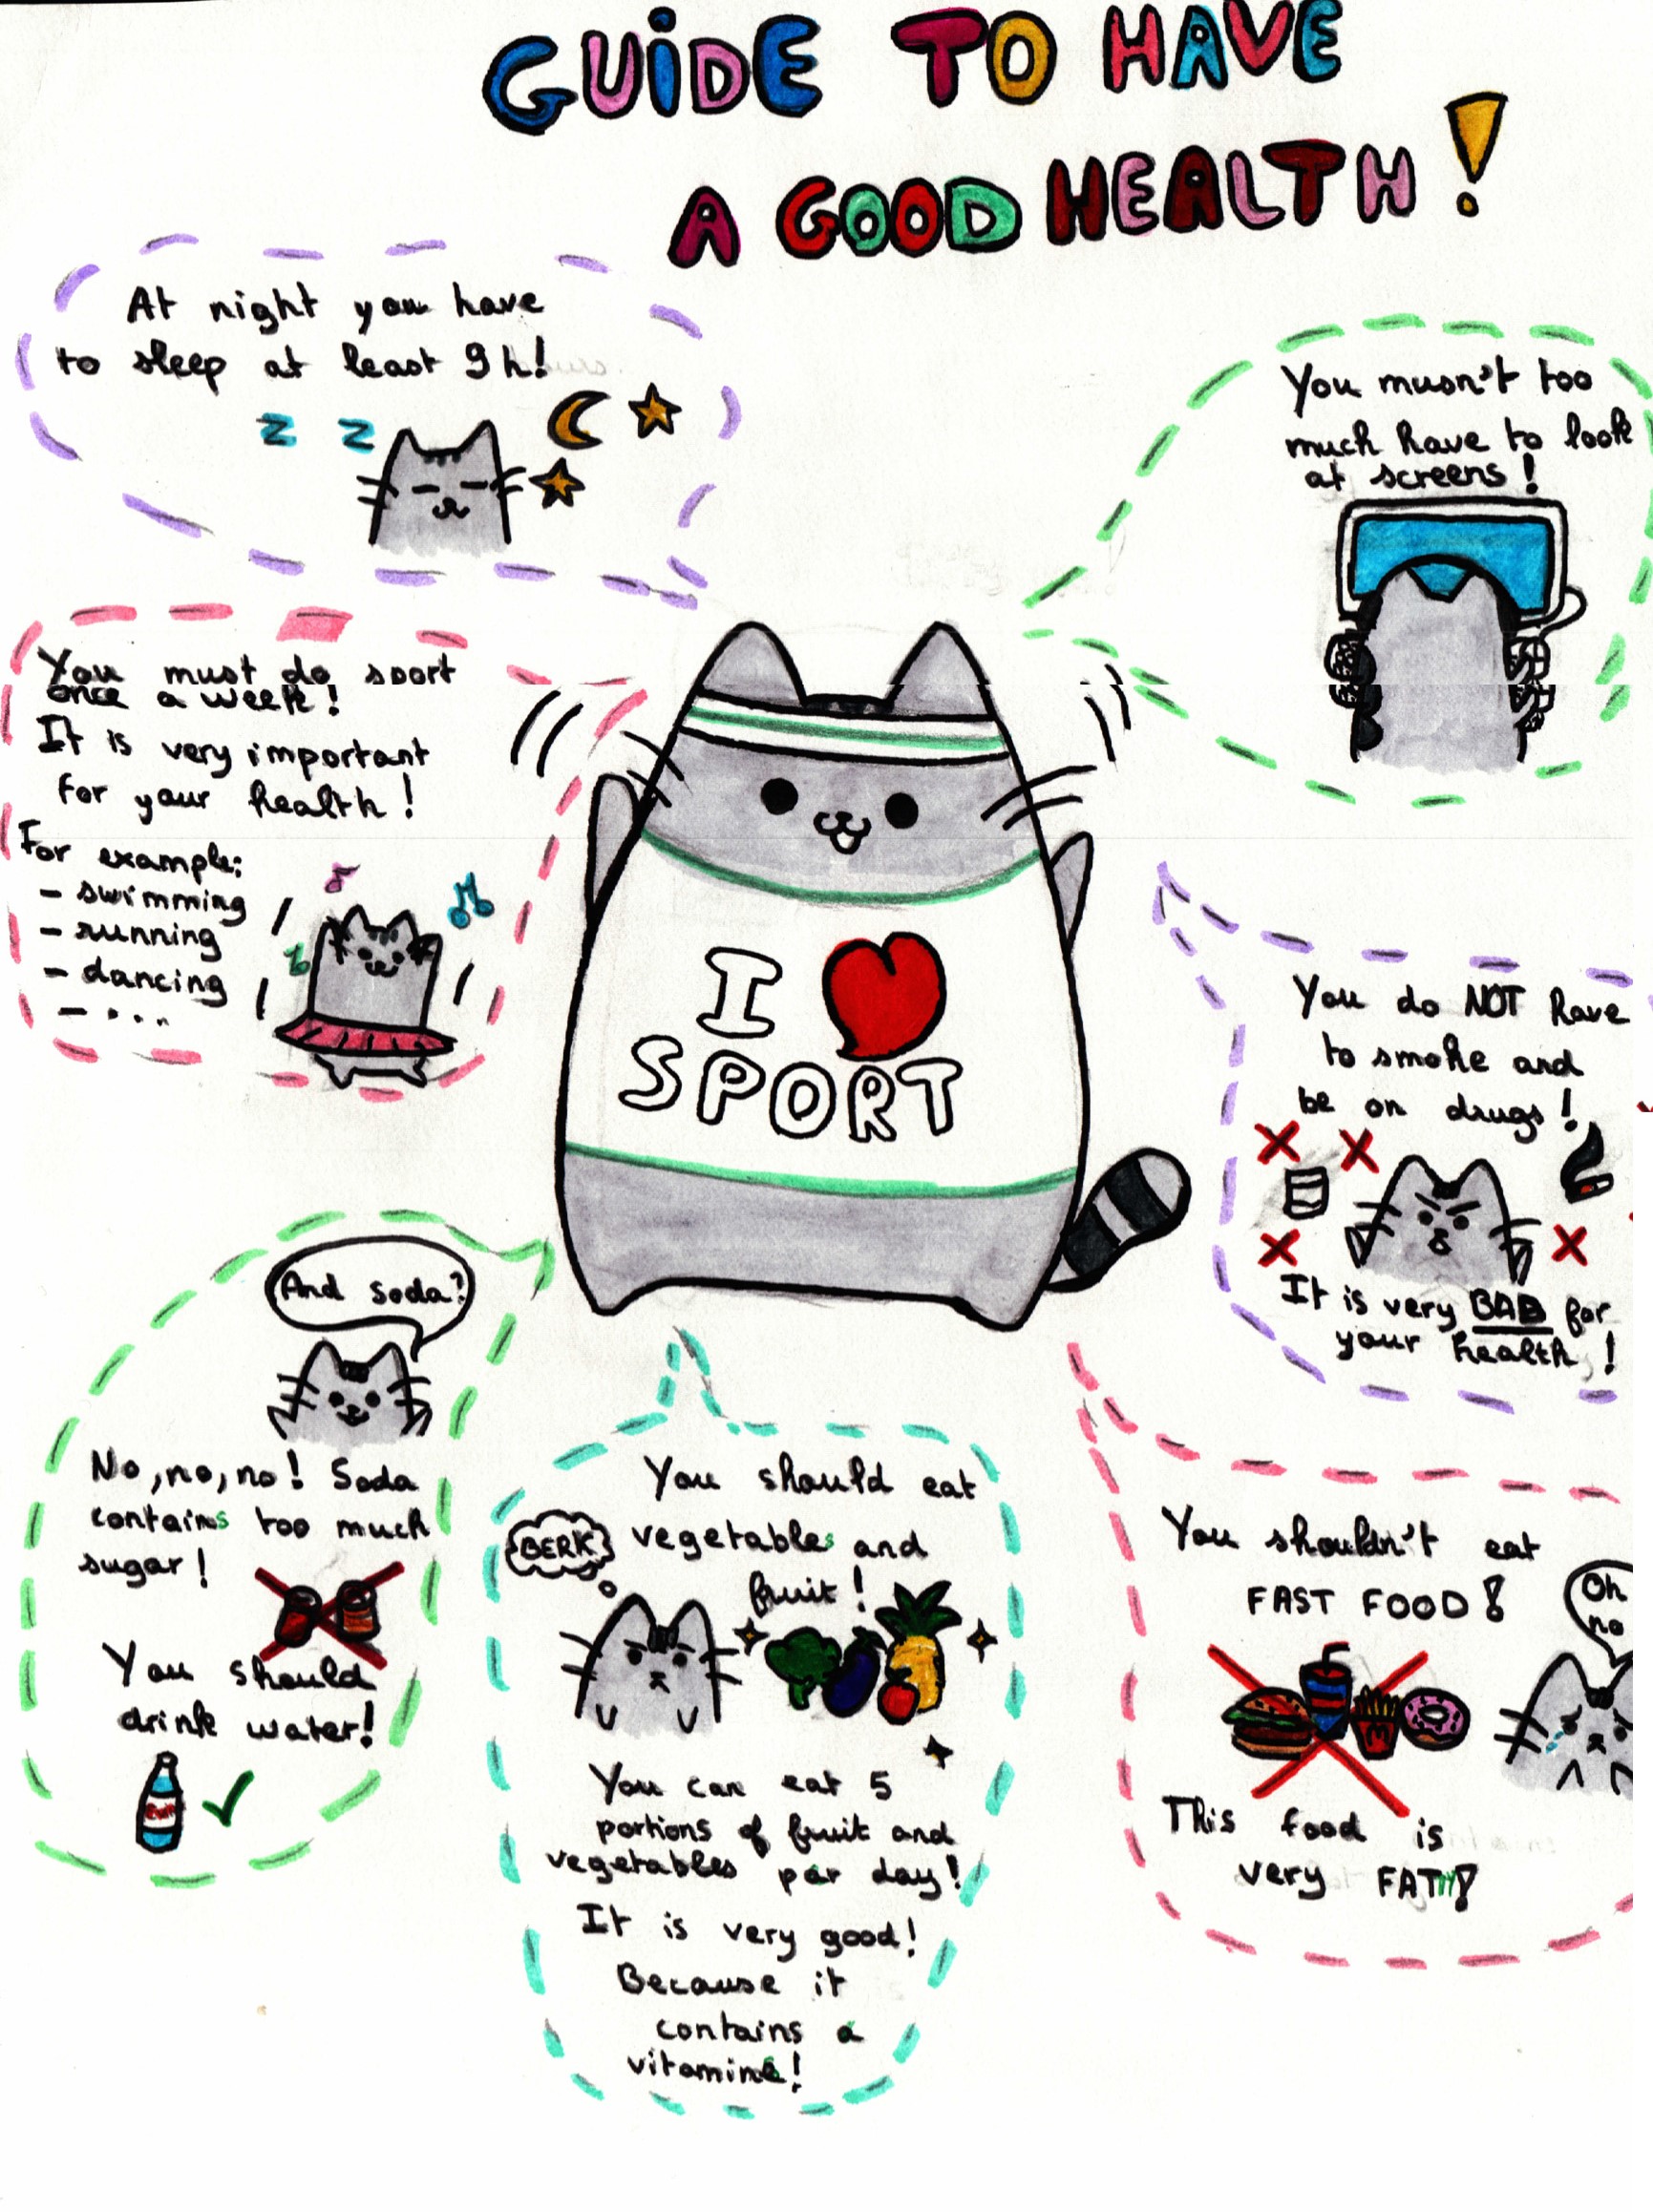 GUIDE TO HAVE
A GOOD HEALTH!
At night you have
to sleep at least 9h!
z z
You musn't too
much have to look
at screens!
You must do sport
once a week!
It is very important
for your health!
For example:
- swimming
- running
- dancing
- ...
I
SPORT
You do NOT have
to smoke and
be on drugs!
It is very BAD for
your health!
And soda?
No, no, no! Soda
contains too much
sugar!
You should
drink water!
You should eat
BERK
vegetables and
fruit!
You can eat 5
portions of fruit and
vegetables per day!
It is very good!
Because it
contains a
vitamine!
You shouldn't eat
FAST FOOD!
Oh
no
This food is
very FATTY!